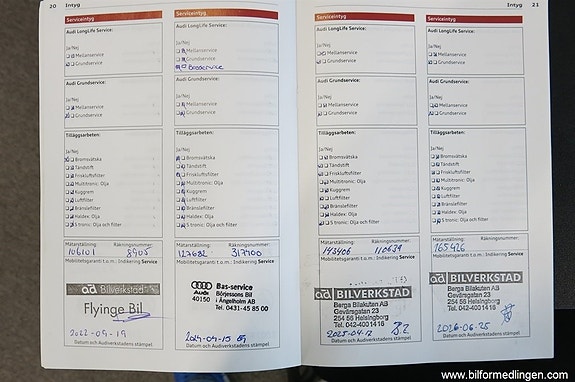 20 Intyg
Serviceintyg
Audi LongLife Service:
Ja/Nej
Mellanservice
Grundservice
Audi Grundservice:
Ja/Nej
Mellanservice
Grundservice
Tilläggsarbeten:
Ja/Nej
Bromsvätska
Tändstift
Friskluftsfilter
Multitronic: Olja
Kuggrem
Luftfilter
Bränslefilter
Haldex: Olja
S tronic: Olja och filter
Mätarställning: Räkningsnummer:
106101 8405
Mobilitetsgaranti t.o.m.: Indikering Service
ad Bilverkstad
Flyinge Bil
2022-09-19
Datum och Audiverkstadens stämpel
Serviceintyg
Audi LongLife Service:
Ja/Nej
Mellanservice
Grundservice
Basservice
Audi Grundservice:
Ja/Nej
Mellanservice
Grundservice
Tilläggsarbeten:
Ja/Nej
Bromsvätska
Tändstift
Friskluftsfilter
Multitronic: Olja
Kuggrem
Luftfilter
Bränslefilter
Haldex: Olja
S tronic: Olja och filter
Mätarställning: Räkningsnummer:
127682 317700
Mobilitetsgaranti t.o.m.: Indikering Service
Audi Bas-service
40150 Börjessons Bil
i Ängelholm AB
Tel. 0431-45 85 00
2024-04-15
Datum och Audiverkstadens stämpel
Intyg 21
Serviceintyg
Audi LongLife Service:
Ja/Nej
Mellanservice
Grundservice
Audi Grundservice:
Ja/Nej
Mellanservice
Grundservice
Tilläggsarbeten:
Ja/Nej
Bromsvätska
Tändstift
Friskluftsfilter
Multitronic: Olja
Kuggrem
Luftfilter
Bränslefilter
Haldex: Olja
S tronic: Olja och filter
Mätarställning: Räkningsnummer:
110639
Mobilitetsgaranti t.o.m.: Indikering Service
ad BILVERKSTAD
Berga Bilakuten AB
Gevärsgatan 23
254 66 Helsingborg
Tel. 042-400 14 18
Datum och Audiverkstadens stämpel
Serviceintyg
Audi LongLife Service:
Ja/Nej
Mellanservice
Grundservice
Audi Grundservice:
Ja/Nej
Mellanservice
Grundservice
Tilläggsarbeten:
Ja/Nej
Bromsvätska
Tändstift
Friskluftsfilter
Multitronic: Olja
Kuggrem
Luftfilter
Bränslefilter
Haldex: Olja
S tronic: Olja och filter
Mätarställning: Räkningsnummer:
165426
Mobilitetsgaranti t.o.m.: Indikering Service
ad BILVERKSTAD
Berga Bilakuten AB
Gevärsgatan 23
254 66 Helsingborg
Tel. 042-400 14 18
2026-06-25
Datum och Audiverkstadens stämpel
www.bilformedlingen.com